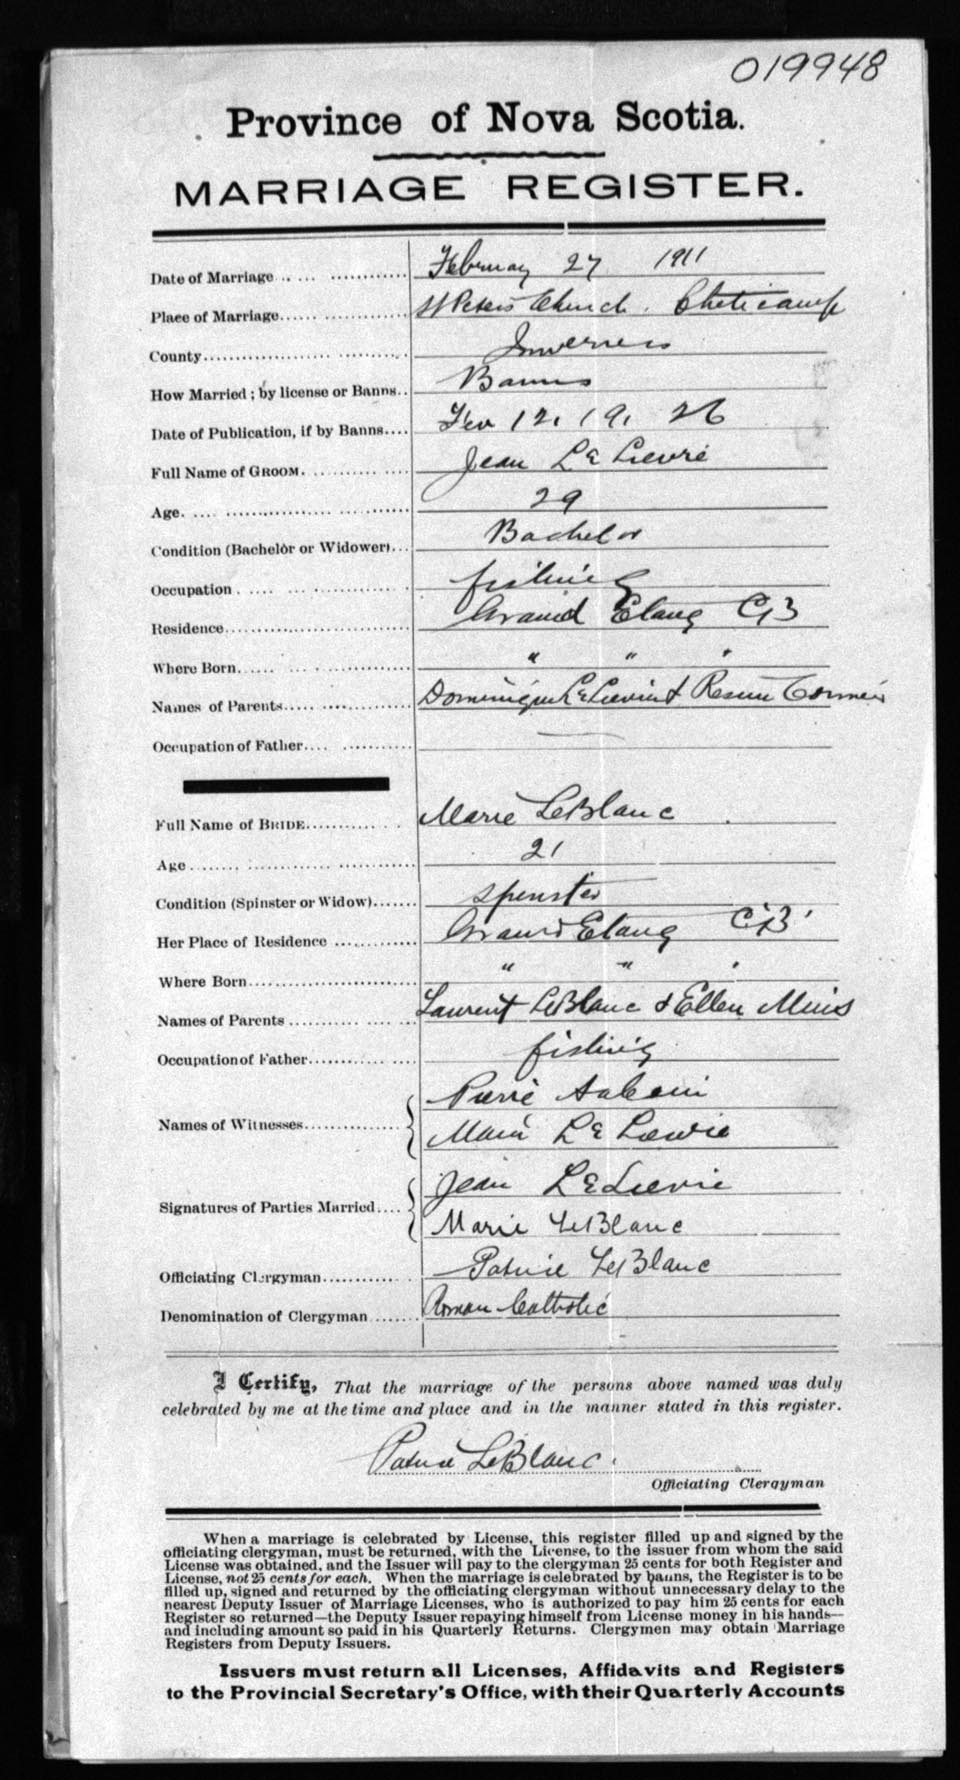 019948
Province of Nova Scotia.
MARRIAGE REGISTER.
Date of Marriage February 27 1911
Place of Marriage St Peters Church. Cheticamp
County Inverness
How Married; by license or Banns Banns
Date of Publication, if by Banns Fev 12, 19, 26
Full Name of GROOM Jean LeLievre
Age 29
Condition (Bachelor or Widower) Bachelor
Occupation fishing
Residence Grand Etang CB
Where Born " " "
Names of Parents Dominique LeLievre & Cormier
Occupation of Father —
Full Name of BRIDE Marie LeBlanc
Age 21
Condition (Spinster or Widow) spinster
Her Place of Residence Grand Etang CB
Where Born " " "
Names of Parents Laurent LeBlanc & Ellen Muis
Occupation of Father fishing
Names of Witnesses Pierre
Marie Le
Signatures of Parties Married Jean LeLievre
Marie LeBlanc
Officiating Clergyman Patrice LeBlanc
Denomination of Clergyman Roman Catholic
I Certify, That the marriage of the persons above named was duly
celebrated by me at the time and place and in the manner stated in this register.
Patrice LeBlanc.
Officiating Clergyman
When a marriage is celebrated by License, this register filled up and signed by the
officiating clergyman, must be returned, with the License, to the issuer from whom the said
License was obtained, and the Issuer will pay to the clergyman 25 cents for both Register and
License, not 25 cents for each. When the marriage is celebrated by banns, the Register is to be
filled up, signed and returned by the officiating clergyman without unnecessary delay to the
nearest Deputy Issuer of Marriage Licenses, who is authorized to pay him 25 cents for each
Register so returned—the Deputy Issuer repaying himself from License money in his hands—
and including amount so paid in his Quarterly Returns. Clergymen may obtain Marriage
Registers from Deputy Issuers.
Issuers must return all Licenses, Affidavits and Registers
to the Provincial Secretary's Office, with their Quarterly Accounts